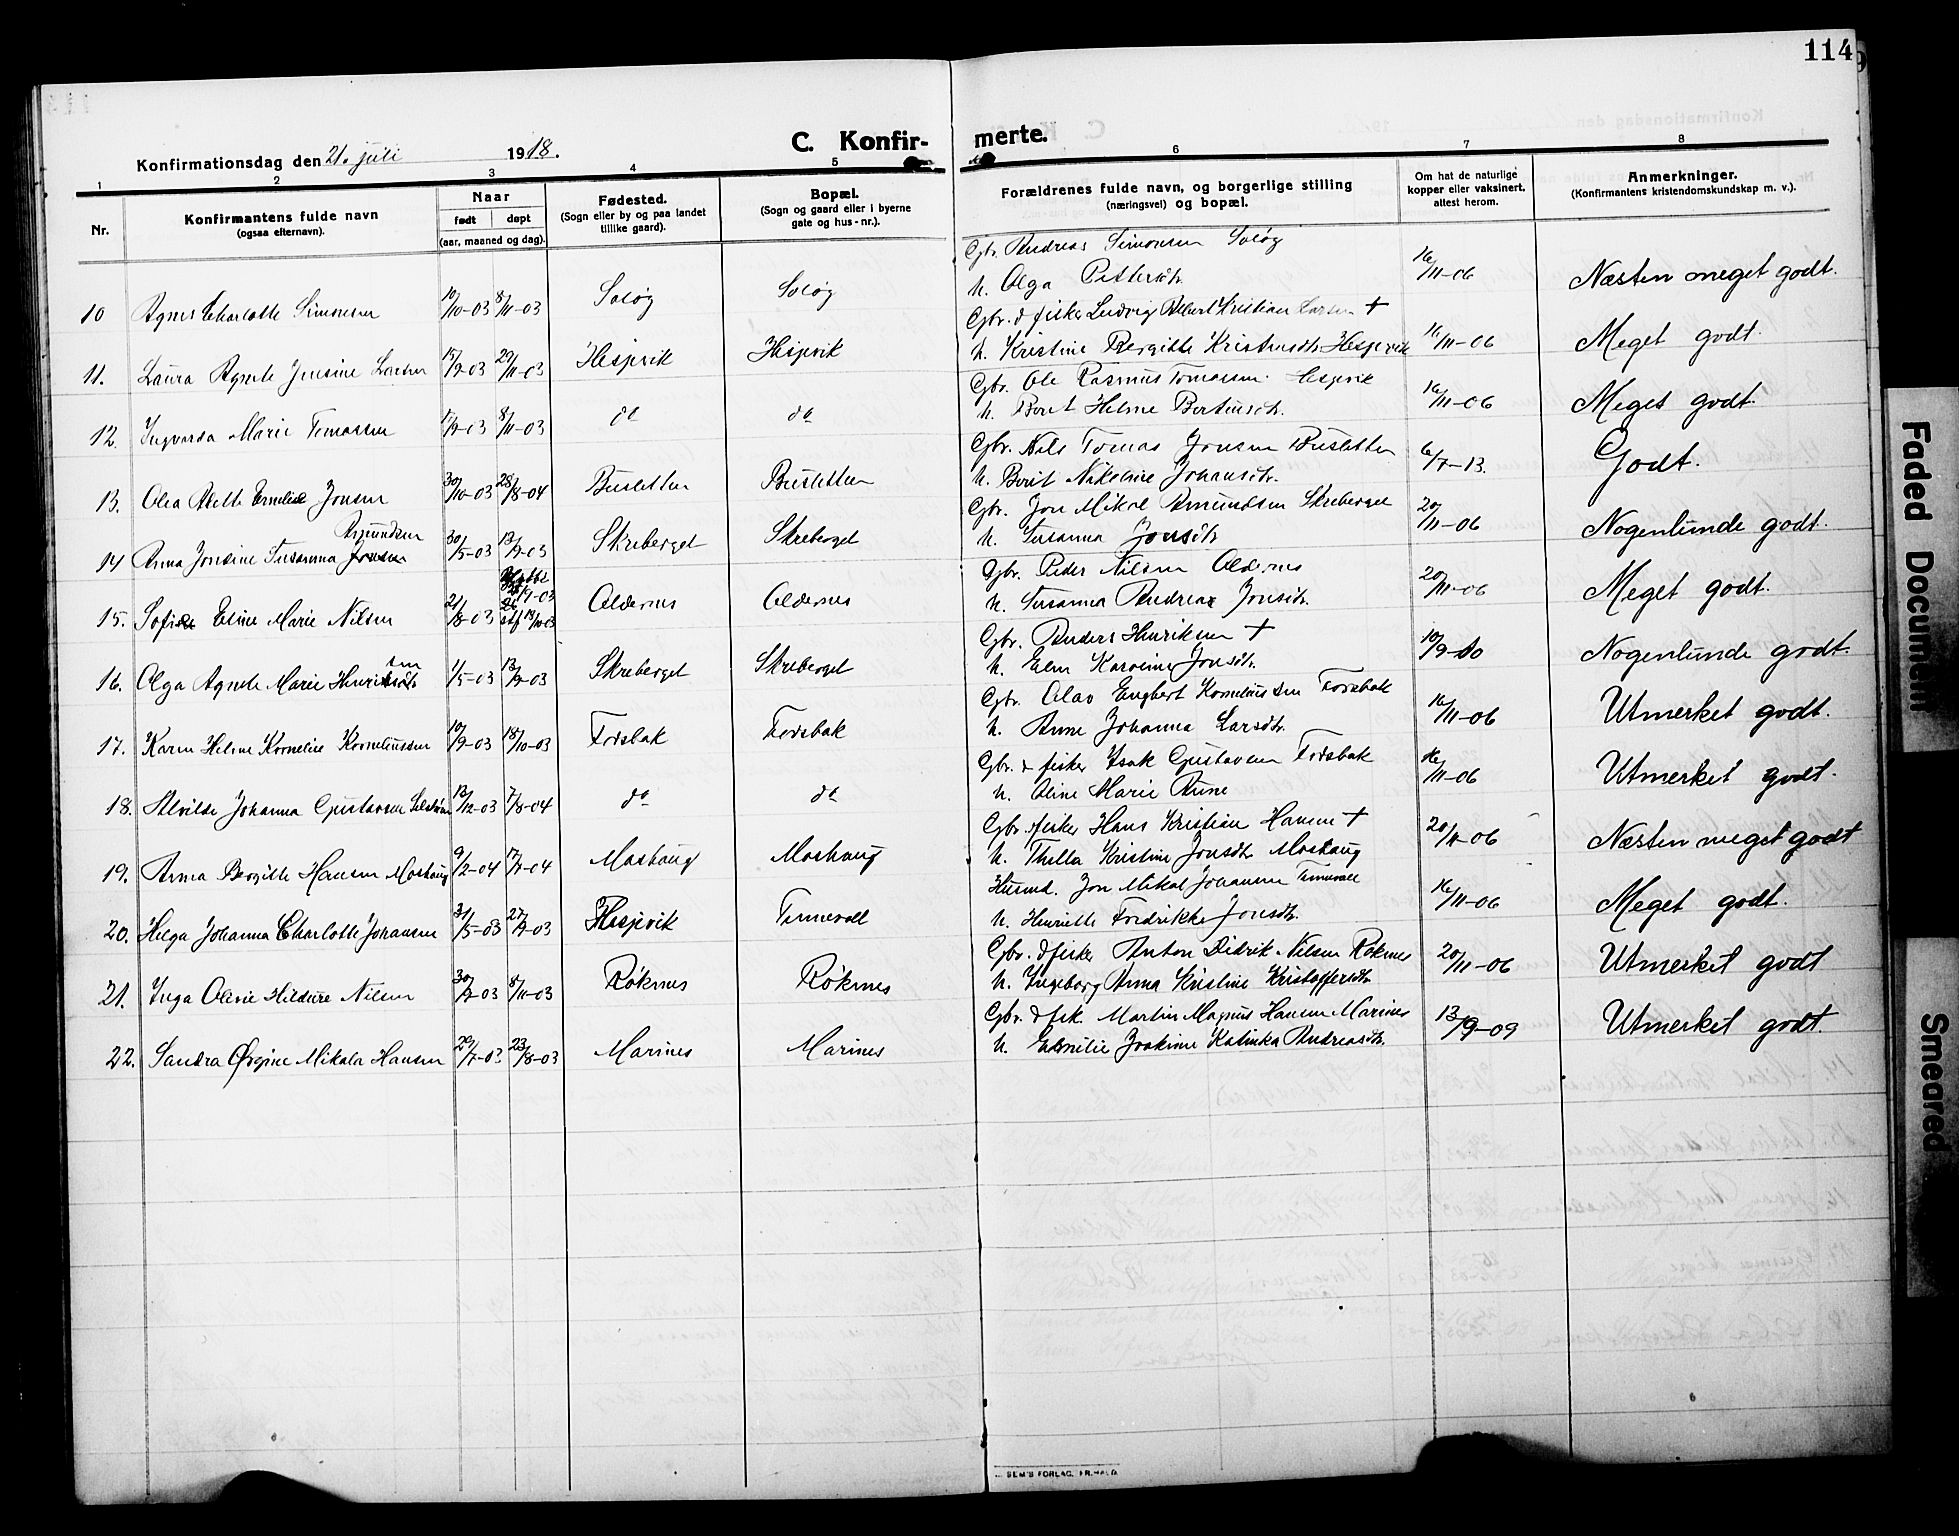 114
Konfirmationsdag den 21. juli 1918.
C. Konfirmerte.
1 2 3 4 5 6 7 8
Nr.
Konfirmantens fulde navn
(ogsaa efternavn).
Naar
født døpt
(aar, maaned og dag).
Fødested.
(Sogn eller by og paa landet
tillike gaard).
Bopæl.
(Sogn og gaard eller i byerne
gate og hus-nr.).
Forældrenes fulde navn, og borgerlige stilling
(næringsvei) og bopæl.
Om hat de naturlige
kopper eller vaksinert,
attest herom.
Anmerkninger.
(Konfirmantens kristendomskundskap m. v.).
Gbr. Andreas Simonsen Soløy
10 Agnes Charlotte Simonsen 10/10-03 8/11-03 Soløy Soløy h. Olga Pettersdtr. 16/11-06 Næsten meget godt.
Gbr. & fisker Ludvig Albert Kristian Larsen +
11. Laura Agnete Jensine Larsen 29/11-03 Hesjevik Hesjevik h. Kristine Bergitte Hesjevik 16/11-06 Meget godt.
Gbr. Ole Rasmus Tomassen Hesjevik
12. Ingvarda Marie Tomassen 8/11-03 do do h. Berit Helene 16/11-06 Meget godt.
Gbr. Nils Tomas Jensen Busletten
13. Olea Emelie Jensen 30/10-03 28/8-04 Busletten Busletten h. Berit Nikoline Johansdtr. 6/7-13. Godt.
Gbr. Jon Mikal Amundsen Skreberget
Amundsen
14 Anna Jonsine Susanna Jonsen 30/5-03 Skreberget Skreberget h. Susanna Jonsdtr 20/11-06 Nogenlunde godt.
Gbr. Peder Nilsen Aldernes
15. Sofie Marie Nilsen 21/8-03 Aldernes Aldernes h. Susanna Andrea Jonsdtr. 20/11-06 Meget godt.
Gbr. Anders Henriksen +
16. Olga Agnete Marie Henriksen 1/5-03 Skreberget Skreberget h. Elen Karoline Jonsdtr. 10/9-10 Nogenlunde godt.
Gbr. Olav Engbert Korneliussen Forsbak
17. Karen Helene Kornelie Korneliussen 10/9-03 18/10-03 Forsbak Forsbak h. Anne Johanna Larsdtr. 16/11-06 Utmerket godt.
Gbr. & fisker Isak Gustavsen Forsbak
18. Alvilde Johanna Gustavsen 13/12-03 7/8-04 do do h. Oline Marie Rune 16/11-06 Utmerket godt.
Gbr. & fisker Hans Kristian Hansen +
19. Anna Bergitte Hansen Moshaug 9/2-04 Moshaug Moshaug h. Thella Kristine Jonsdtr Moshaug 20/11-06 Næsten meget godt
Husmd. Jon Mikal Johansen Tennevoll
20. Helga Johanna Charlotte Johansen 31/5-03 Hesjevik Tennevoll h. Henriette Fredrikke Jonsdtr. 16/11-06 Meget godt.
Gbr. & fisker Anton Didrik Nilsen Røknes
21. Inga Olevie Hildure Nilsen 8/11-03 Røknes Røknes h. Ingeborg Anna Kristine Kristoffersdtr 20/11-06 Utmerket godt
Gbr. & fisk. Martin Magnus Hansen Marines
22. Sandra Mikala Hansen 29/7-03 23/8-03 Marines Marines h. Emelie Joakime Katinka Andreasdtr. 13/9-09 Utmerket godt.
SEM'S FORLAG, FR.HALD.
6
Faded Document
Smeared